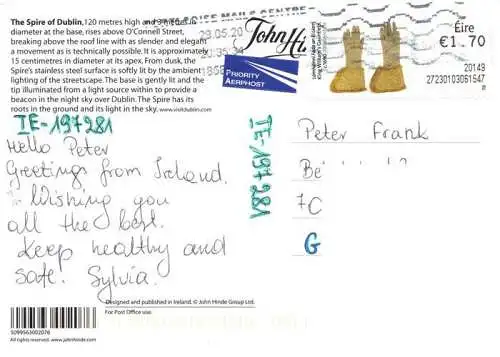 The Spire of Dublin, 120 metres high and
diameter at the base, rises above O'Connell Street,
breaking above the roof line with as slender and elegant
a movement as is technically possible. It is approximately
15 centimetres in diameter at its apex. From dusk, the
Spire's stainless steel surface is softly lit by the ambient
lighting of the streetscape. The base is gently lit and the
tip illuminated from a light source within to provide a
beacon in the night sky over Dublin. The Spire has its
roots in the ground and its light in the sky. www.visitdublin.com
IE-197281
Hello Peter
Greetings from Ireland.
Wishing you
all the best.
Keep healthy and
safe. Sylvia.
Designed and published in Ireland. © John Hinde Group Ltd.
For Post Office use.
5099563002076
All rights reserved. www.johnhinde.com
MAILS CENTRE
23.05.20
John Hi
PRIORITY
AERPHOST
Éire
€1.70
20149
27230103061547
IE-197281
Peter Frank
Be
7C
G